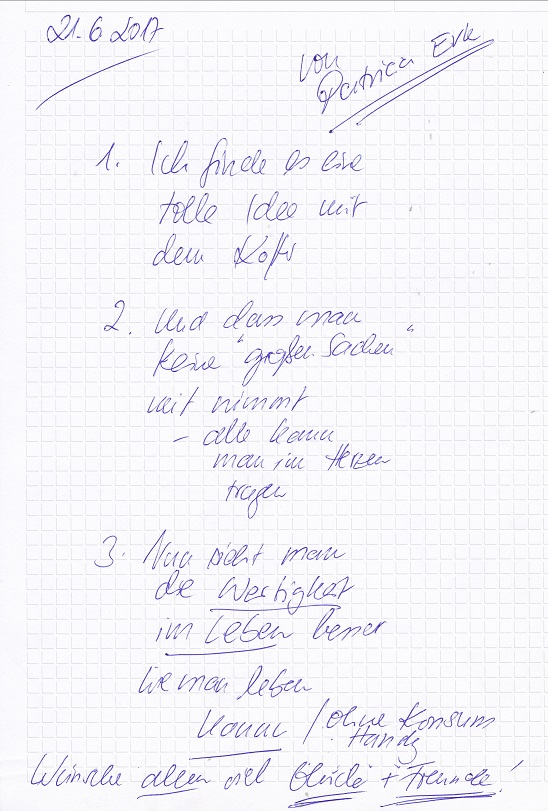 21.6.2017
von
Patricia Erk
1. Ich finde es eine
tolle Idee mit
dem Koffer
2. Und dass man
keine "großen Sachen"
mit nimmt
- alle kann
man im Herzen
tragen
3. Nun sieht man
die Wertigkeit
im Leben besser
Wie man leben
kann / ohne Konsum
Handy
Wünsche allen viel Glück + Freunde!